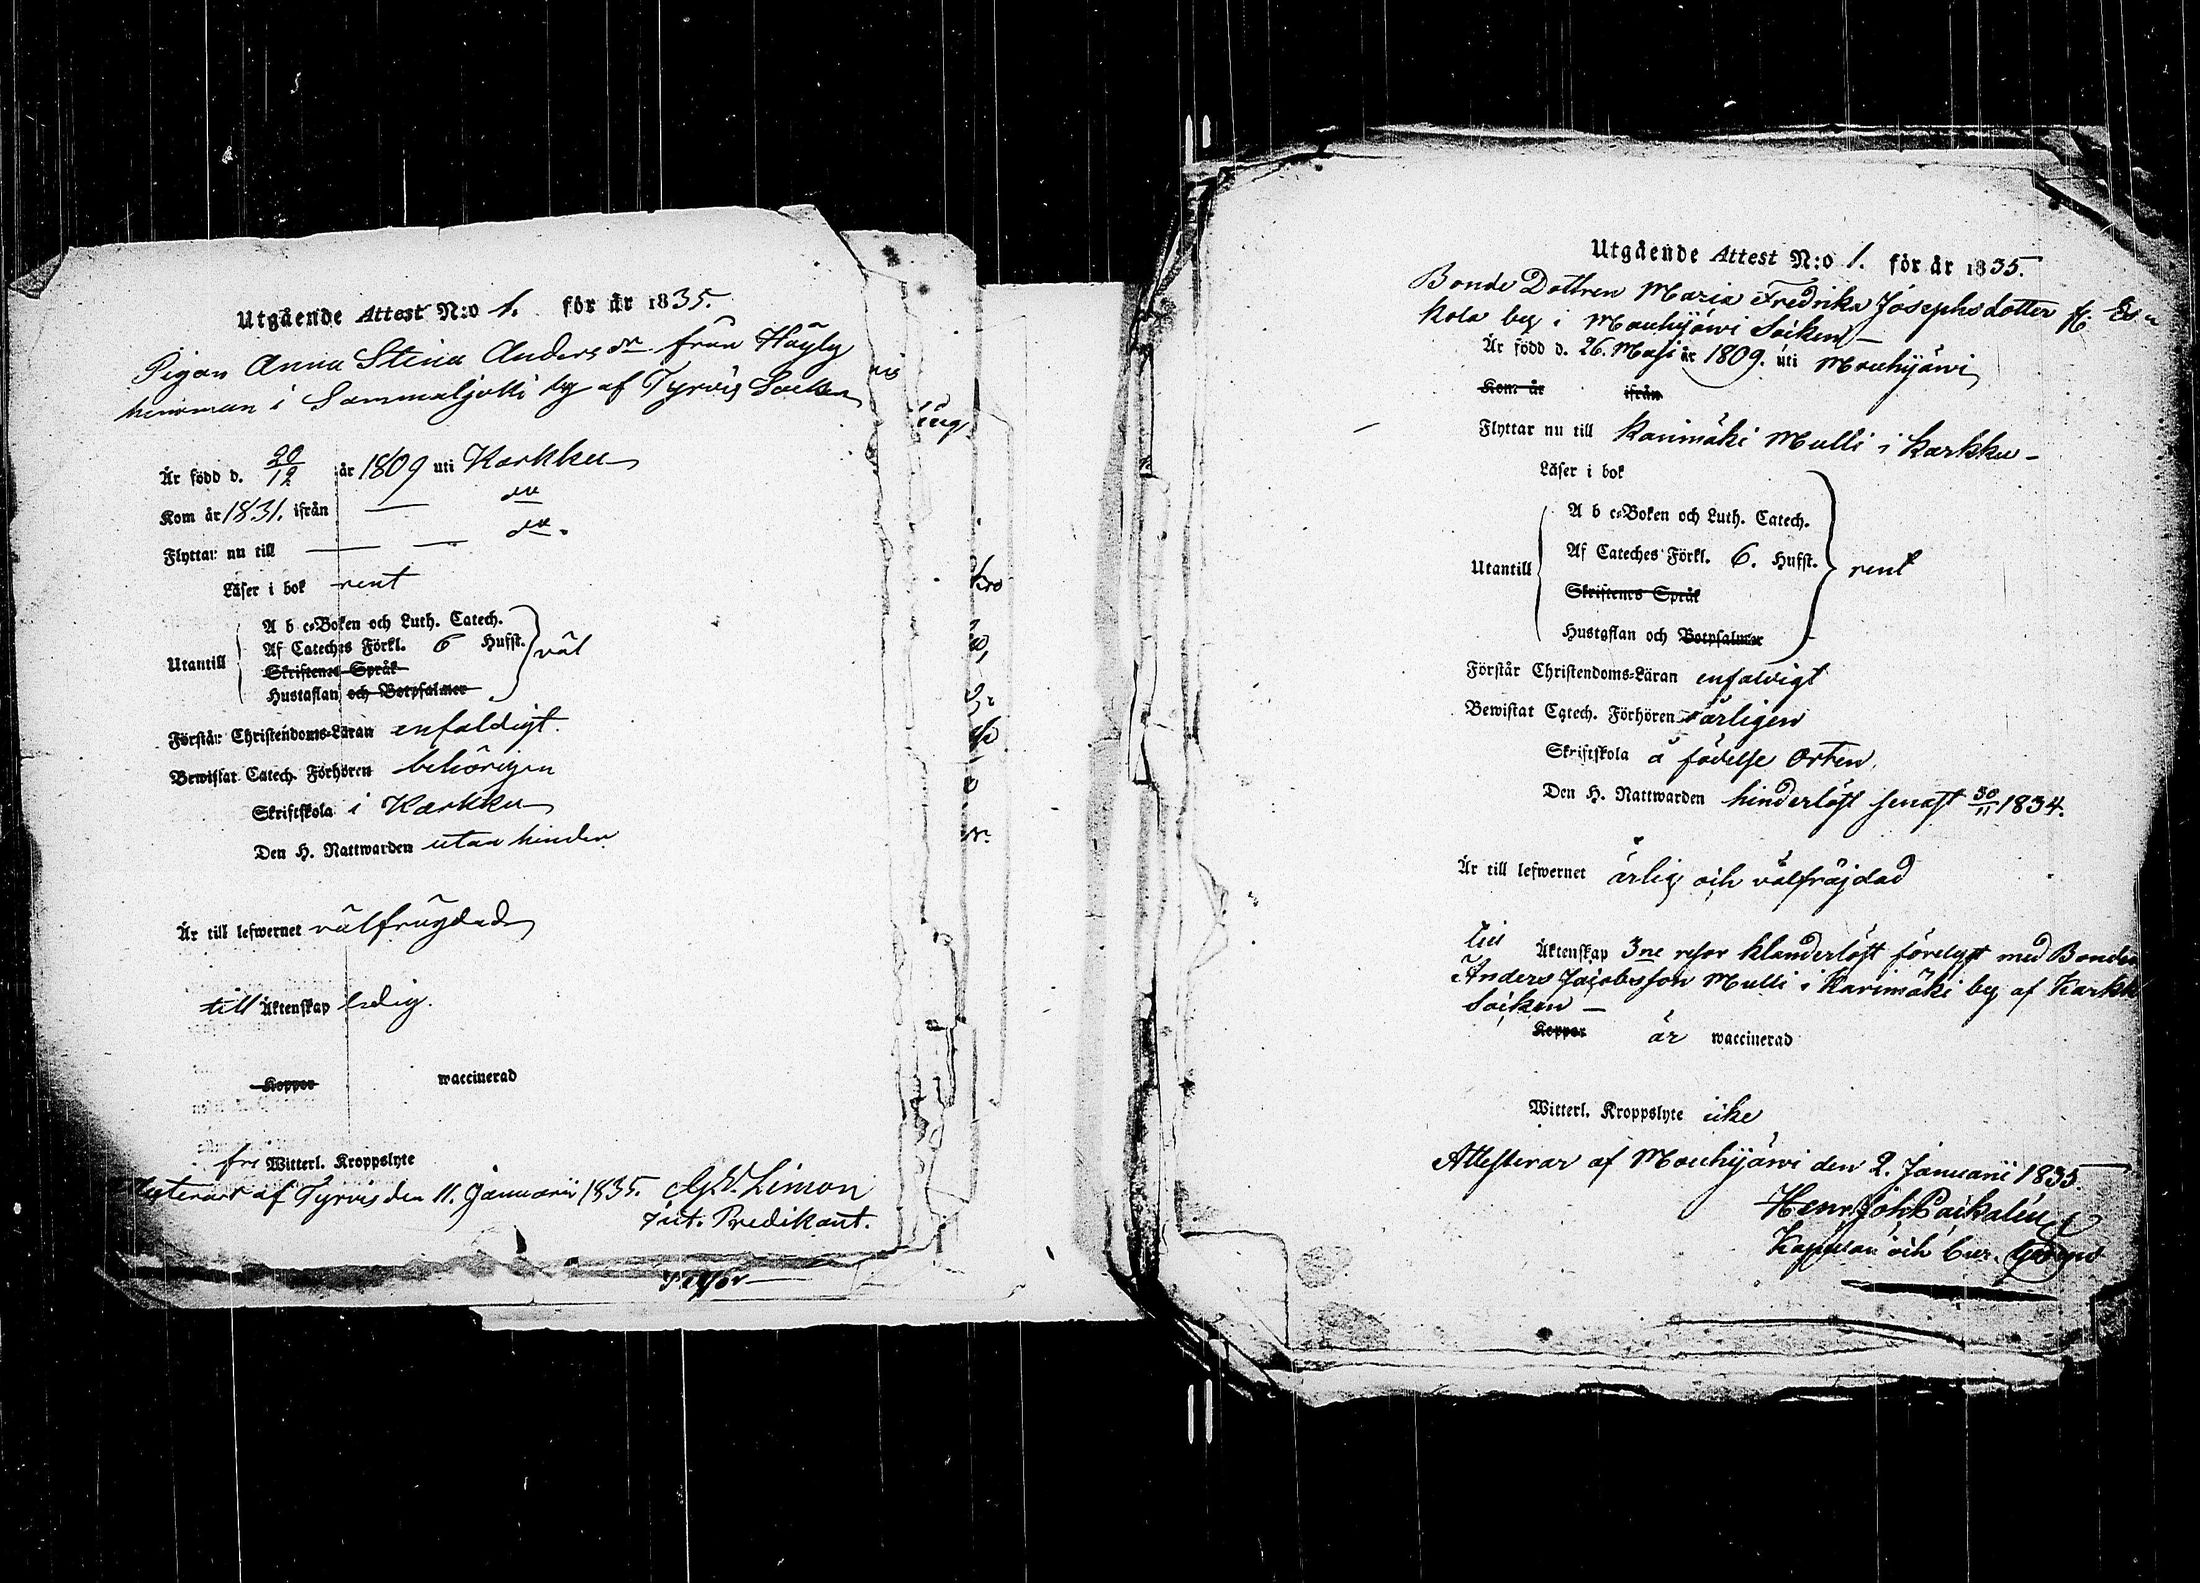 Utgående Attest N:o 1. för år 1835.
Pigan Anna Stina Andersdr från Häyly
henoman i Sammaljoki by af Tyrvis Socken
Är född d. 20/12 år 1809 uti Karkku
Kom år 1831. ifrån — do
Flyttar nu till — — do.
Läser i bok rent
A b c=Boken och Luth. Catech.
Af Cateches Förkl. 6 Hufst.
Utantill väl
Skriftenes Språk
Hustaflan och Botpsalmer
Förstår Christendoms=Läran enfaldigt.
Bewistat Catech. Förhören behörigen
Skriftskola i Karkku
Den H. Nattwarden utan hinder
Är till lefwernet välfrägdad
till Äktenskap ledig.
Koppor waccinerad
fri Witterl. Kroppslyte
af Tyrvis den 11. Januarii 1835. Limon
Predikant.
Utgående Attest N:o 1. för år 1835.
Bonde Dottren Maria Fredrika Josephsdotter fr.
kola by i Mouhijärvi Socken —
Är född d. 26. Maji år 1809. uti Mouhijärvi
Kom år ifrån
Flyttar nu till Karimäki Mulli i Karkku —
Läser i bok
A b c=Boken och Luth. Catech.
Af Cateches Förkl. 6. Hufst.
Utantill rent
Skriftenes Språk
Hustaflan och Botpsalmer
Förstår Christendoms=Läran enfaldigt
Bewistat Catech. Förhören årligen
Skriftskola å födelse Orten
Den H. Nattwarden hinderlöst senast 30/11 1834.
Är till lefwernet ärlig och välfräjdad
till Äktenskap 3ne resor klanderlöst förelyst med Bonden
Anders Jacobsson Mulli i Karimäki by af Karkk
Socken —
Koppor är waccinerad
Witterl. Kroppslyte icke
Attesterar af Mouhijärvi den 2. Januarii 1835.
Henr. Joh.
Kappelan och Cur.